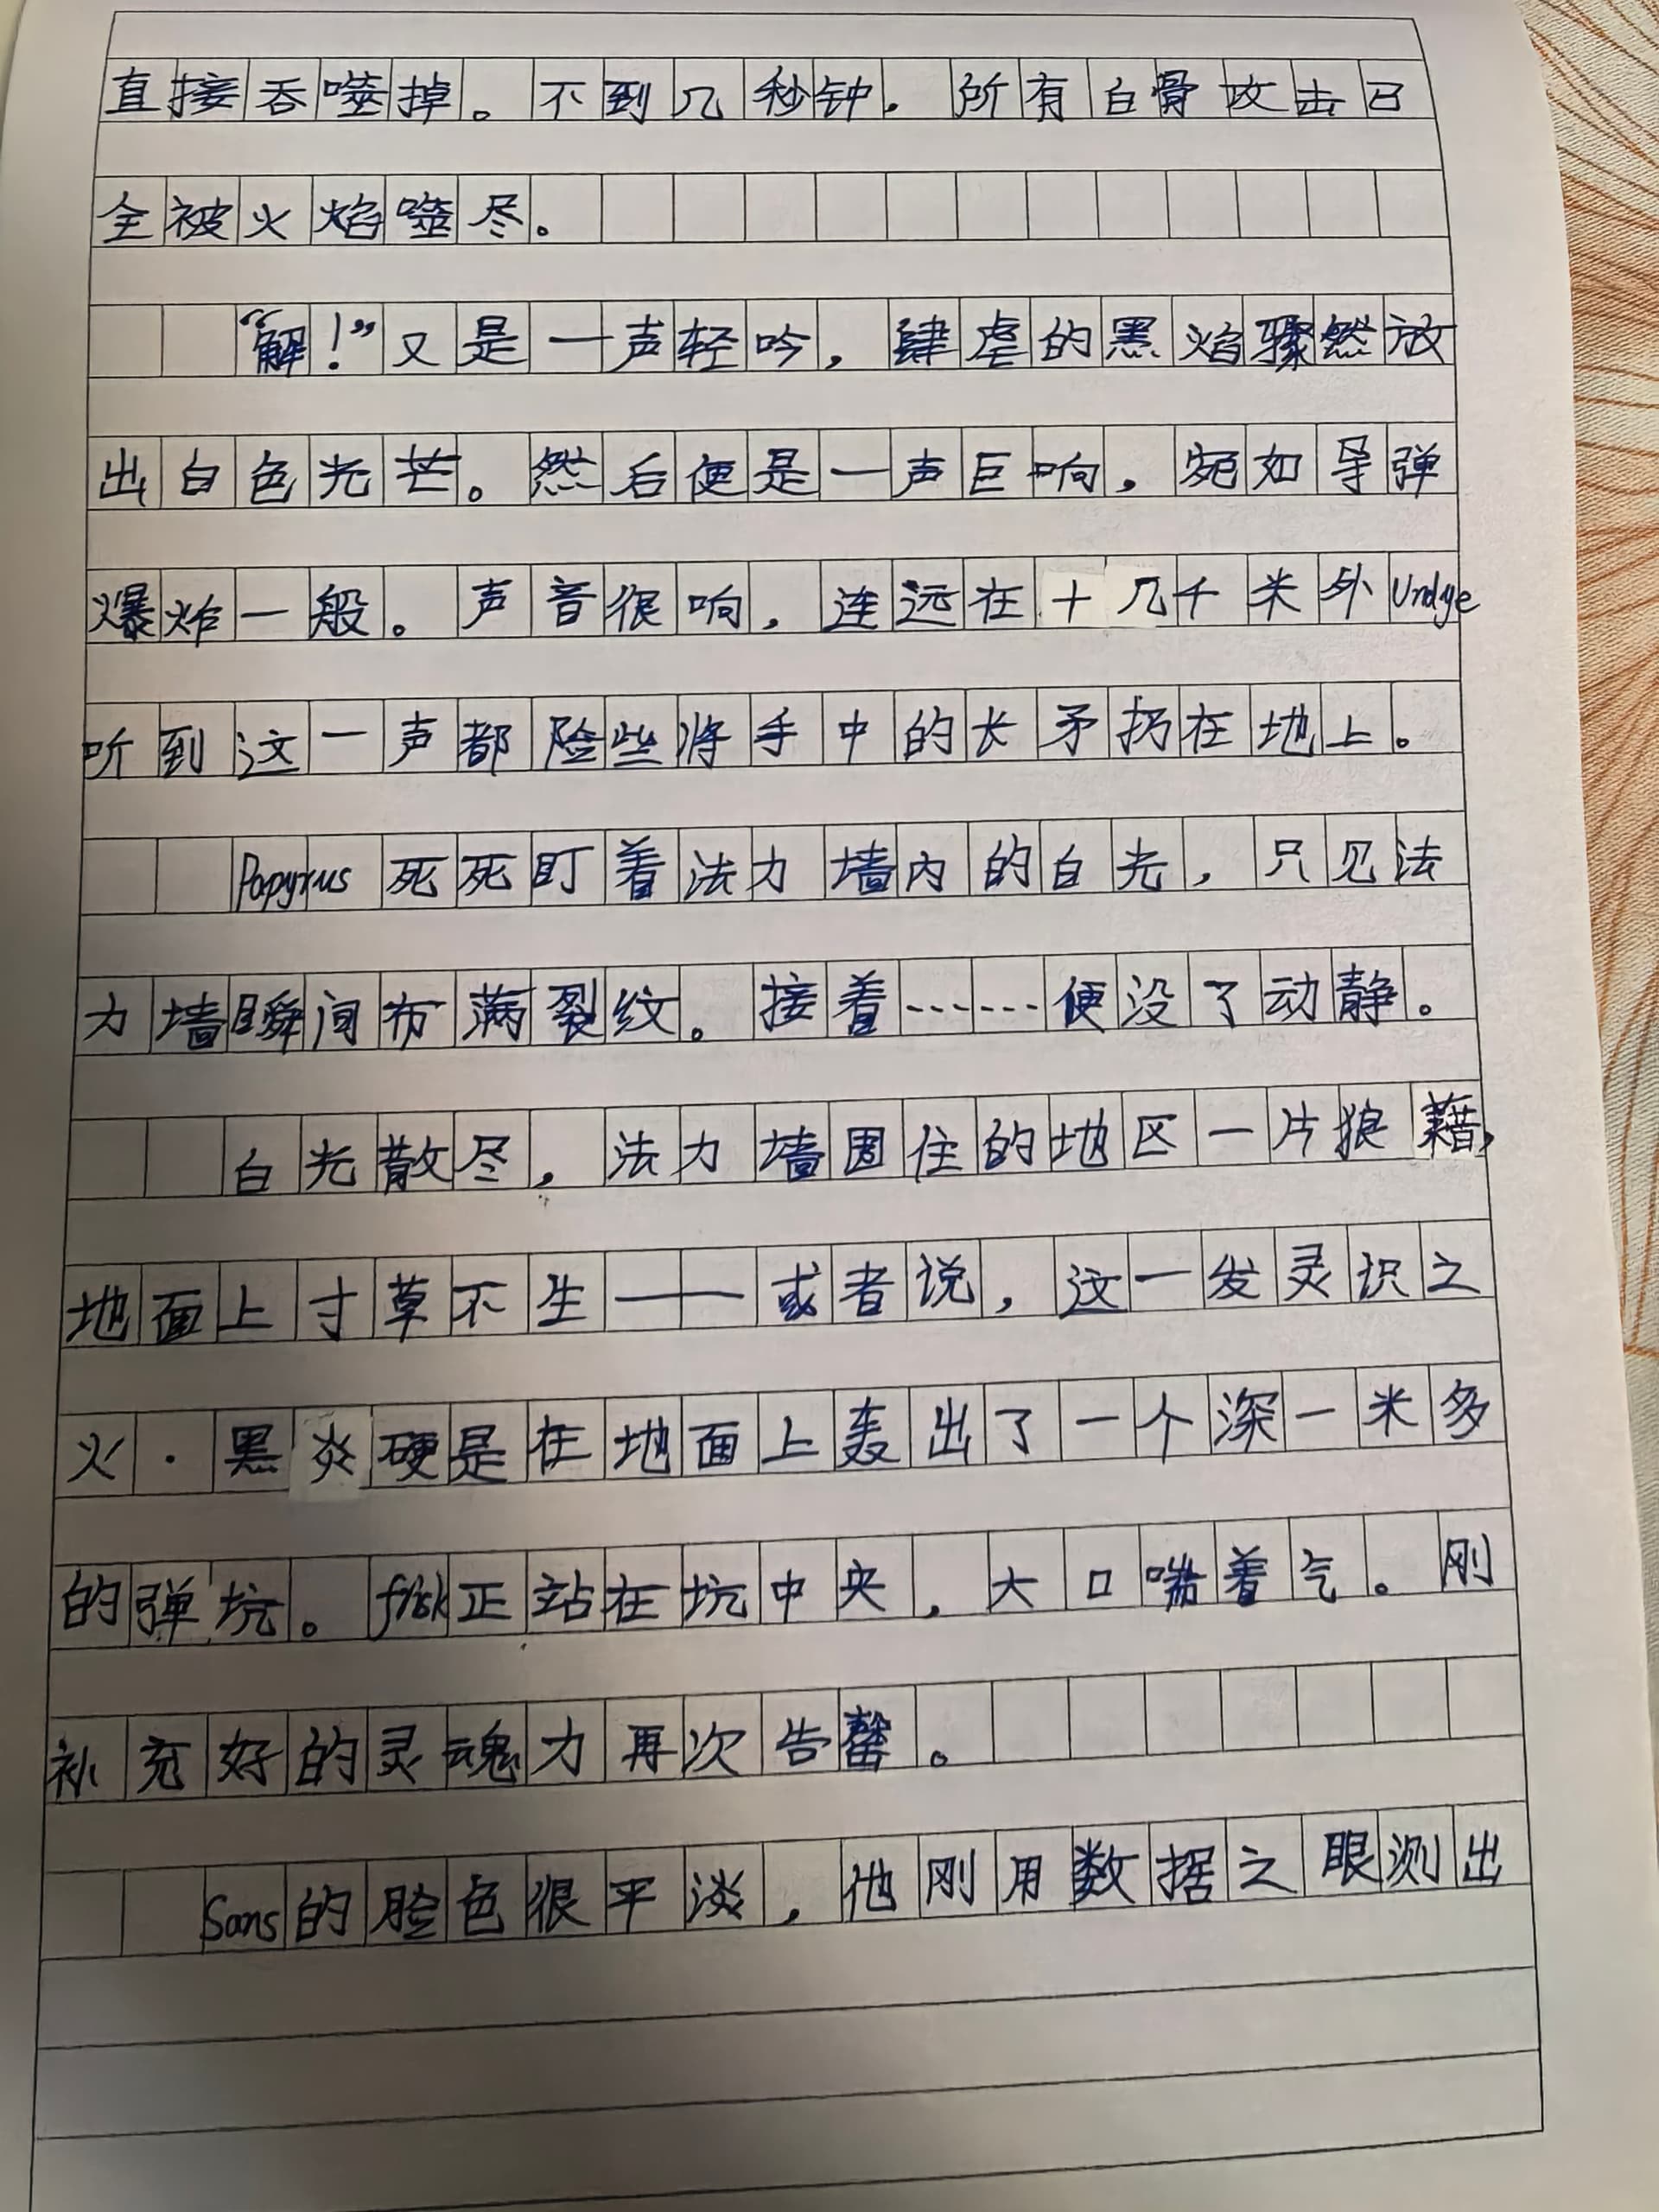 直接吞噬掉。不到几秒钟，所有白骨攻击已
全被火焰噬尽。
“解！”又是一声轻吟，肆虐的黑焰骤然放
出白色光芒。然后便是一声巨响，宛如导弹
爆炸一般。声音很响，连远在十几千米外Undye
听到这一声都险些将手中的长矛扔在地上。
Papyrus死死盯着法力墙内的白光，只见法
力墙瞬间布满裂纹。接着……便没了动静。
白光散尽，法力墙围住的地区一片狼藉，
地面上寸草不生——或者说，这一发灵识之
火·黑炎硬是在地面上轰出了一个深一米多
的弹坑。frisk正站在坑中央，大口喘着气。刚
补充好的灵魂力再次告罄。
Sans的脸色很平淡，他刚用数据之眼测出